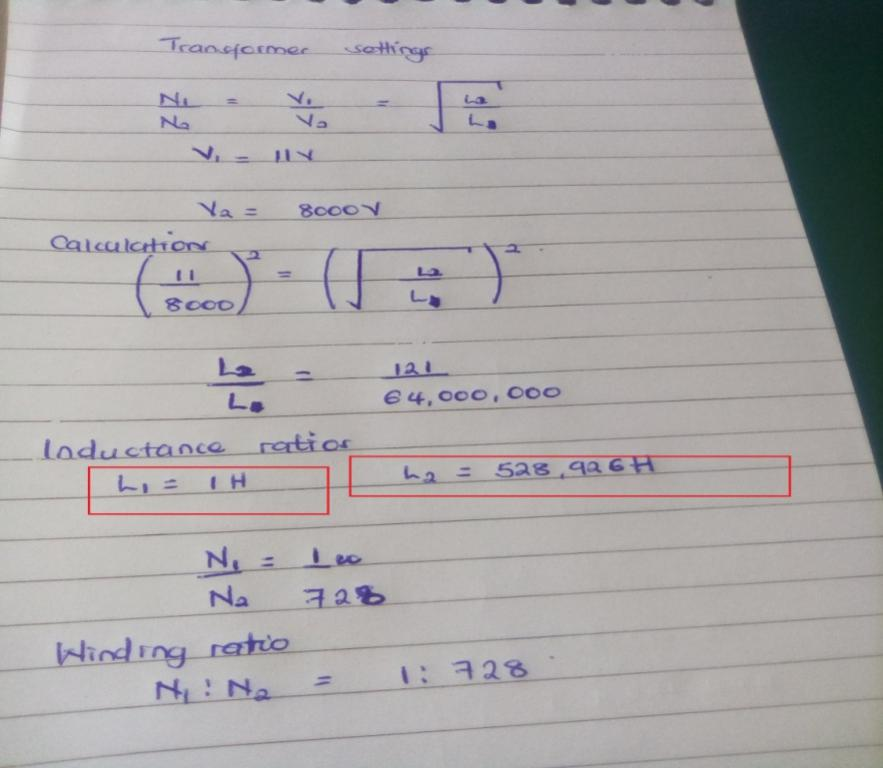 Transformer settings
N1/N2 = V1/V2 = √(L2/L)
V1 = 11V
V2 = 8000V
Calculation
(11/8000)² = (√(L2/L))²
L2/L = 121/64,000,000
Inductance ratios
L1 = 1H L2 = 528,926H
N1/N2 = 1/728
Winding ratio
N1 : N2 = 1 : 728